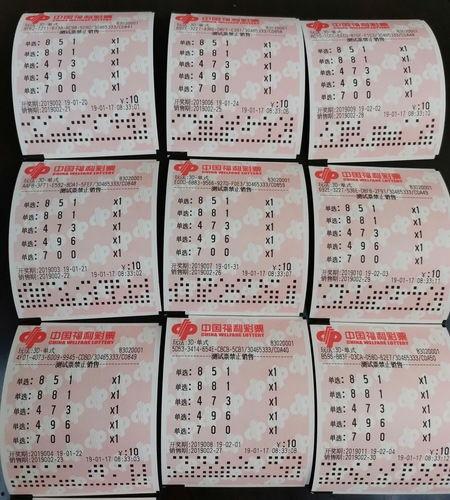 中国福利彩票
CHINA WELFARE LOTTERY
83020001
单选: 8 5 1 x1
单选: 8 8 1 x1
单选: 4 7 3 x1
单选: 4 9 6 x1
单选: 7 0 0 x1
开奖期:2019002 19-01-20 ¥:10
销售期:2019002-21 19-01-17 08:33:01
中国福利彩票
83020001
测试票禁止销售
单选: 8 5 1 x1
单选: 8 8 1 x1
单选: 4 7 3 x1
单选: 4 9 6 x1
单选: 7 0 0 x1
开奖期:2019006 19-01-24 ¥:10
销售期:2019002-25 19-01-17 08:33:06
中国福利彩票
83020001
测试票禁止销售
单选: 8 5 1 x1
单选: 8 8 1 x1
单选: 4 7 3 x1
单选: 4 9 6 x1
单选: 7 0 0 x1
开奖期:2019009 19-02-02 ¥:10
销售期:2019002-28 19-01-17 08:33:10
中国福利彩票
CHINA WELFARE LOTTERY
玩法:3D-单式 83020001
测试票禁止销售
单选: 8 5 1 x1
单选: 8 8 1 x1
单选: 4 7 3 x1
单选: 4 9 6 x1
单选: 7 0 0 x1
开奖期:2019003 19-01-21 ¥:10
销售期:2019002-22 19-01-17 08:33:02
中国福利彩票
CHINA WELFARE LOTTERY
玩法:3D-单式 83020001
测试票禁止销售
单选: 8 5 1 x1
单选: 8 8 1 x1
单选: 4 7 3 x1
单选: 4 9 6 x1
单选: 7 0 0 x1
开奖期:2019007 19-01-31 ¥:10
销售期:2019002-26 19-01-17 08:33:07
中国福利彩票
CHINA WELFARE LOTTERY
玩法:3D-单式 83020001
测试票禁止销售
单选: 8 5 1 x1
单选: 8 8 1 x1
单选: 4 7 3 x1
单选: 4 9 6 x1
单选: 7 0 0 x1
开奖期:2019010 19-02-03 ¥:10
销售期:2019002-29 19-01-17 08:33:11
中国福利彩票
CHINA WELFARE LOTTERY
玩法:3D-单式 83020001
测试票禁止销售
单选: 8 5 1 x1
单选: 8 8 1 x1
单选: 4 7 3 x1
单选: 4 9 6 x1
单选: 7 0 0 x1
开奖期:2019004 19-01-22 ¥:10
销售期:2019002-23 19-01-17 08:33:03
中国福利彩票
CHINA WELFARE LOTTERY
玩法:3D-单式 83020001
测试票禁止销售
单选: 8 5 1 x1
单选: 8 8 1 x1
单选: 4 7 3 x1
单选: 4 9 6 x1
单选: 7 0 0 x1
开奖期:2019008 19-02-01 ¥:10
销售期:2019002-27 19-01-17 08:33:08
中国福利彩票
CHINA WELFARE LOTTERY
玩法:3D-单式 83020001
测试票禁止销售
单选: 8 5 1 x1
单选: 8 8 1 x1
单选: 4 7 3 x1
单选: 4 9 6 x1
单选: 7 0 0 x1
开奖期:2019011 19-02-04 ¥:10
销售期:2019002-30 19-01-17 08:33:12